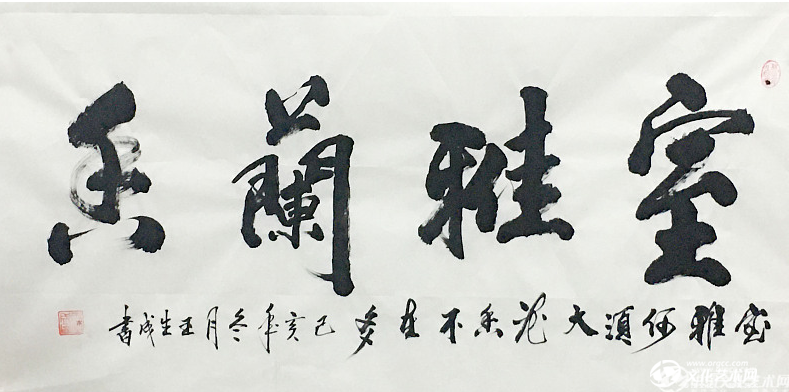 室雅蘭香
室雅何須大花香不在多己亥年冬月王生成書
文化艺术网